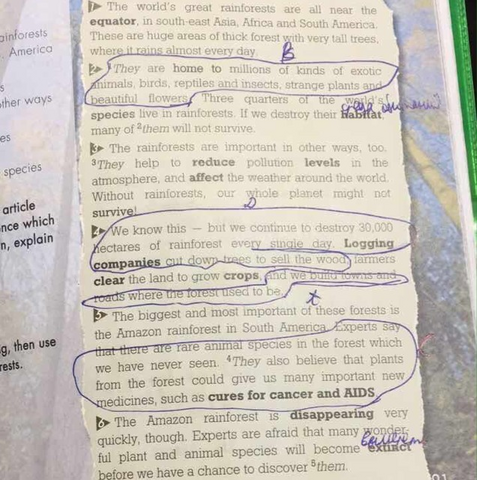 1 The world's great rainforests are all near the
equator, in south-east Asia, Africa and South America.
These are huge areas of thick forest with very tall trees,
where it rains almost every day.
B
2 They are home to millions of kinds of exotic
animals, birds, reptiles and insects, strange plants and
beautiful flowers. Three quarters of the world's
species live in rainforests. If we destroy their habitat
many of ²them will not survive.
3 The rainforests are important in other ways, too.
³They help to reduce pollution levels in the
atmosphere, and affect the weather around the world.
Without rainforests, our whole planet might not
survive!
D
4 We know this – but we continue to destroy 30,000
hectares of rainforest every single day. Logging
companies cut down trees to sell the wood, farmers
clear the land to grow crops, and we build towns and
roads where the forest used to be.
5 The biggest and most important of these forests is
the Amazon rainforest in South America. Experts say
that there are rare animal species in the forest which
we have never seen. ⁴They also believe that plants
from the forest could give us many important new
medicines, such as cures for cancer and AIDS.
6 The Amazon rainforest is disappearing very
quickly, though. Experts are afraid that many wonder-
ful plant and animal species will become extinct
before we have a chance to discover ⁵them.
ainforests
America
s
other ways
es
species
article
nce which
n, explain
g, then use
rests.
91